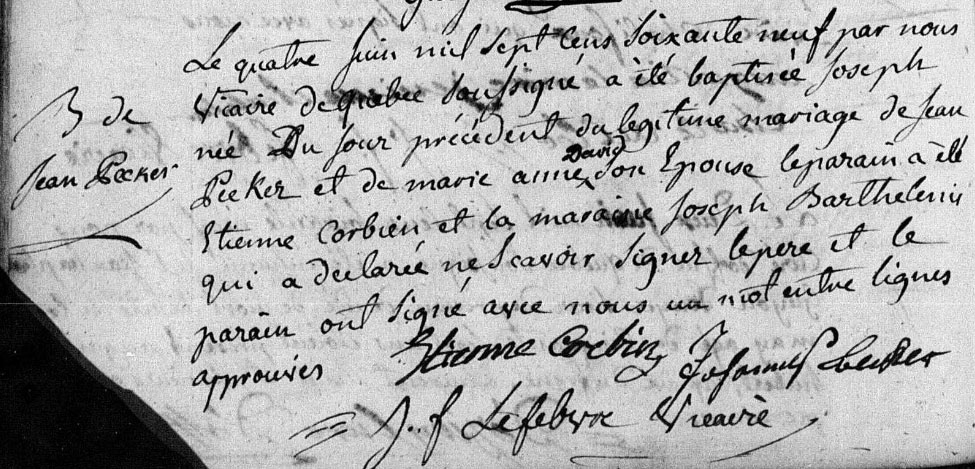 Le quatre juin mil sept cens soixante neuf par nous
B de
Vicaire de quebec soussigné à été baptisée joseph
née Du jour précédent du legitime mariage de jean
Jean Pecker
David
Peeker et de marie anne son Epouse le parain à été
Etienne Corbien et la maraine joseph Barthelemy
qui a declarée ne scavoir signer le pere et le
parain ont signé avec nous un mot entre lignes
approuvés
Etienne Corbin Johannes
J. f Lefebvre Vicaire